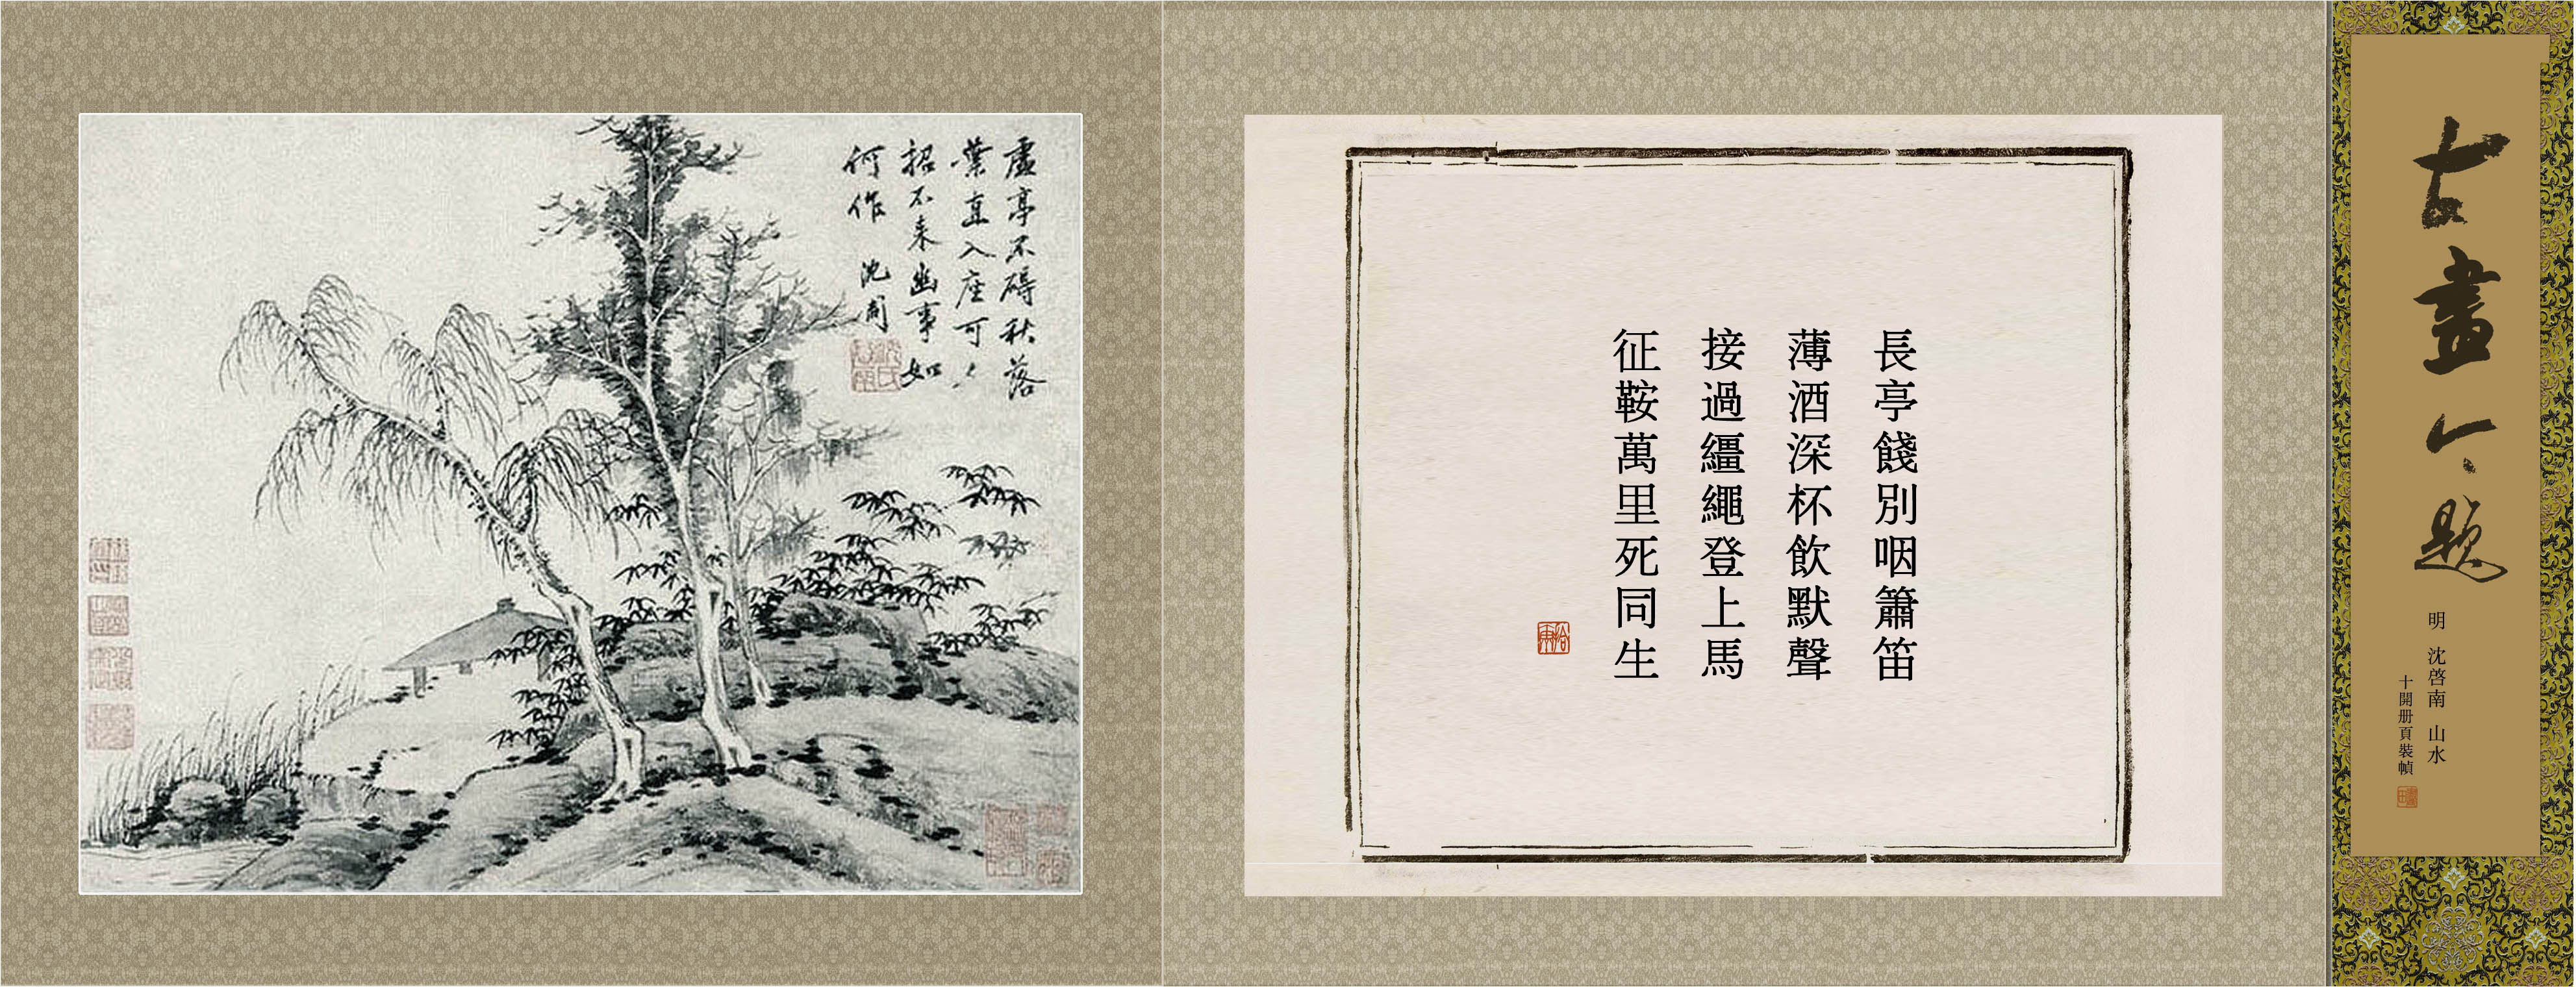 古畫今題
明 沈啓南 山水
十開册頁裝幀
長亭餞別咽簫笛
薄酒深杯飲默聲
接過繮繩登上馬
征鞍萬里死同生
虛亭不碍秋落
葉直入座可〻
招不来幽事如
何作 沈周